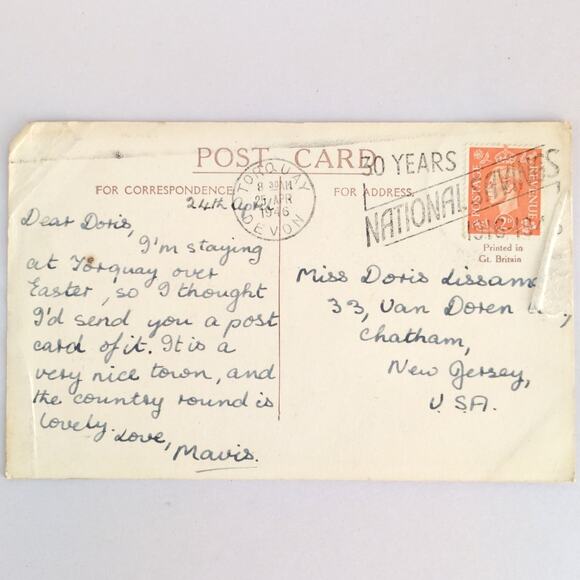 POST CARD
FOR CORRESPONDENCE
FOR ADDRESS.
TORQUAY
8 30AM
25 APR
1946
DEVON
30 YEARS
NATIONAL
POSTAGE
REVENUE
Printed in
Gt. Britain
24th April
Dear Doris,
I'm staying
at Torquay over
Easter, so I thought
I'd send you a post
card of it. It is a
very nice town, and
the country round is
lovely. Love,
Mavis.
Miss Doris
33, Van Doren
Chatham,
New Jersey,
U.S.A.